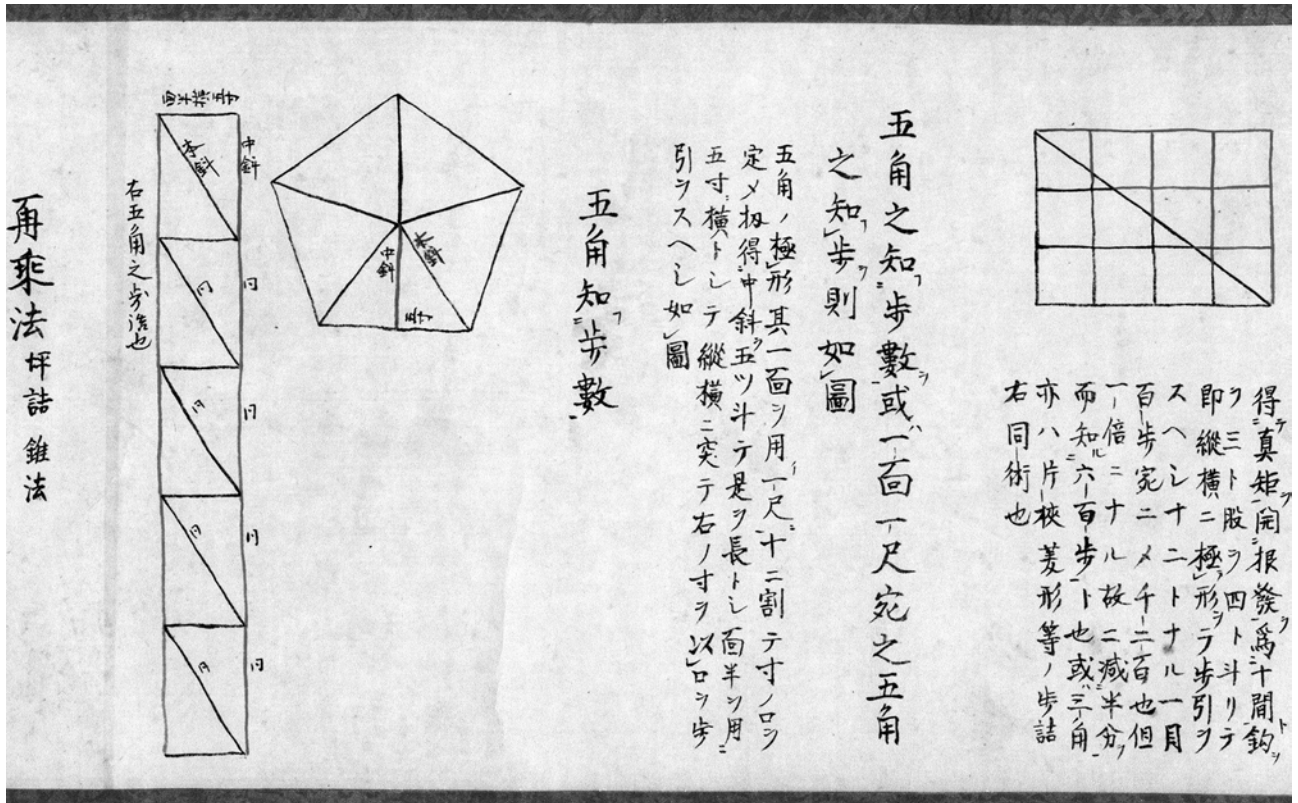 得真矩開根發爲十間鈎
ヲ三ト股ヲ四ト斗リテ
即縱横ニ極形ヲ歩引ヲ
スヘシナ二トナル一目
百歩宛ニメ千二百也但
一倍ニナル故ニ減半分
而知六百歩ト也或三角
亦ハ片梜菱形等ノ歩詰
右同術也
五角之知歩數或一面一尺宛之五角
之知歩則如圖
五角ノ極形其一面ヲ用一尺十二割テ寸ノロヲ
定メ扨得中斜五ツ斗テ是ヲ長トシ面半ヲ用
五寸横トシテ縱横ニ突テ右ノ寸ヲ以ロヲ歩
引ヲスヘシ如圖
五角知歩數
本斜
中斜
五寸
面半横五寸
中斜
本斜
円
円
円
円
円
円
円
円
右五角之歩法也
再乘法坪詰錐法